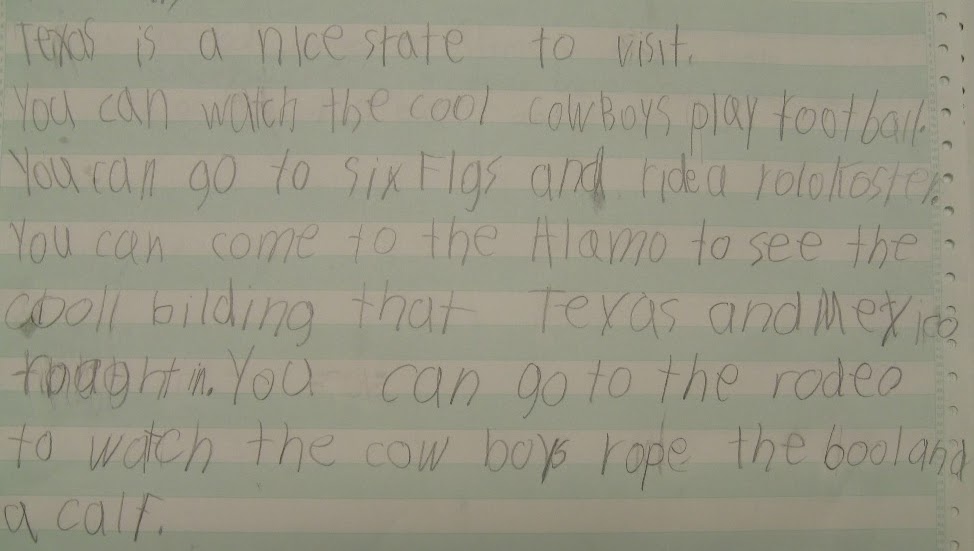 Texas is a nice state to visit.
You can watch the cool cowBoys play football.
You can go to six Flgs and ride a rolokoster.
You can come to the Alamo to see the
cooll bilding that Texas and Mexico
fought in. You can go to the rodeo
to watch the cow boys rope the bool and
a calf.